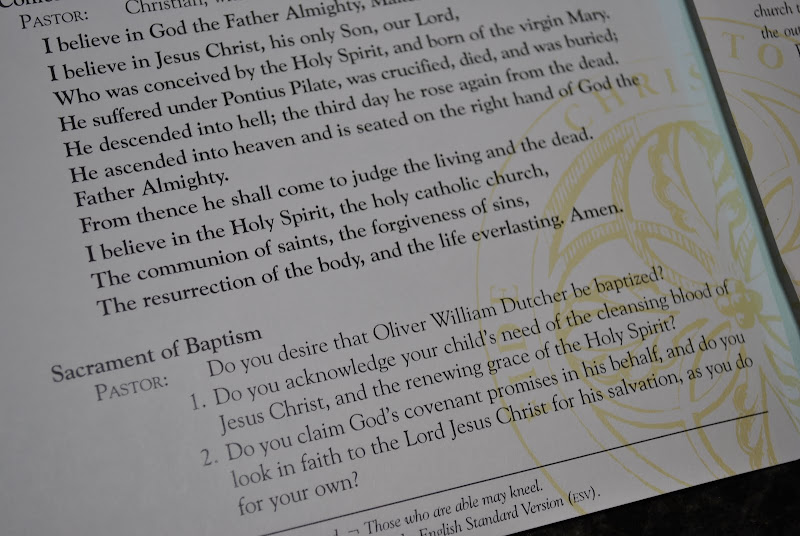 PASTOR: Christian,
I believe in God the Father Almighty,
I believe in Jesus Christ, his only Son, our Lord,
Who was conceived by the Holy Spirit, and born of the virgin Mary.
He suffered under Pontius Pilate, was crucified, died, and was buried;
He descended into hell; the third day he rose again from the dead.
He ascended into heaven and is seated on the right hand of God the
Father Almighty.
From thence he shall come to judge the living and the dead.
I believe in the Holy Spirit, the holy catholic church,
The communion of saints, the forgiveness of sins,
The resurrection of the body, and the life everlasting. Amen.
Sacrament of Baptism
PASTOR: Do you desire that Oliver William Dutcher be baptized?
1. Do you acknowledge your child's need of the cleansing blood of
Jesus Christ, and the renewing grace of the Holy Spirit?
2. Do you claim God's covenant promises in his behalf, and do you
look in faith to the Lord Jesus Christ for his salvation, as you do
for your own?
¬ Those who are able may kneel.
English Standard Version (ESV).
church
the
CHRISTO